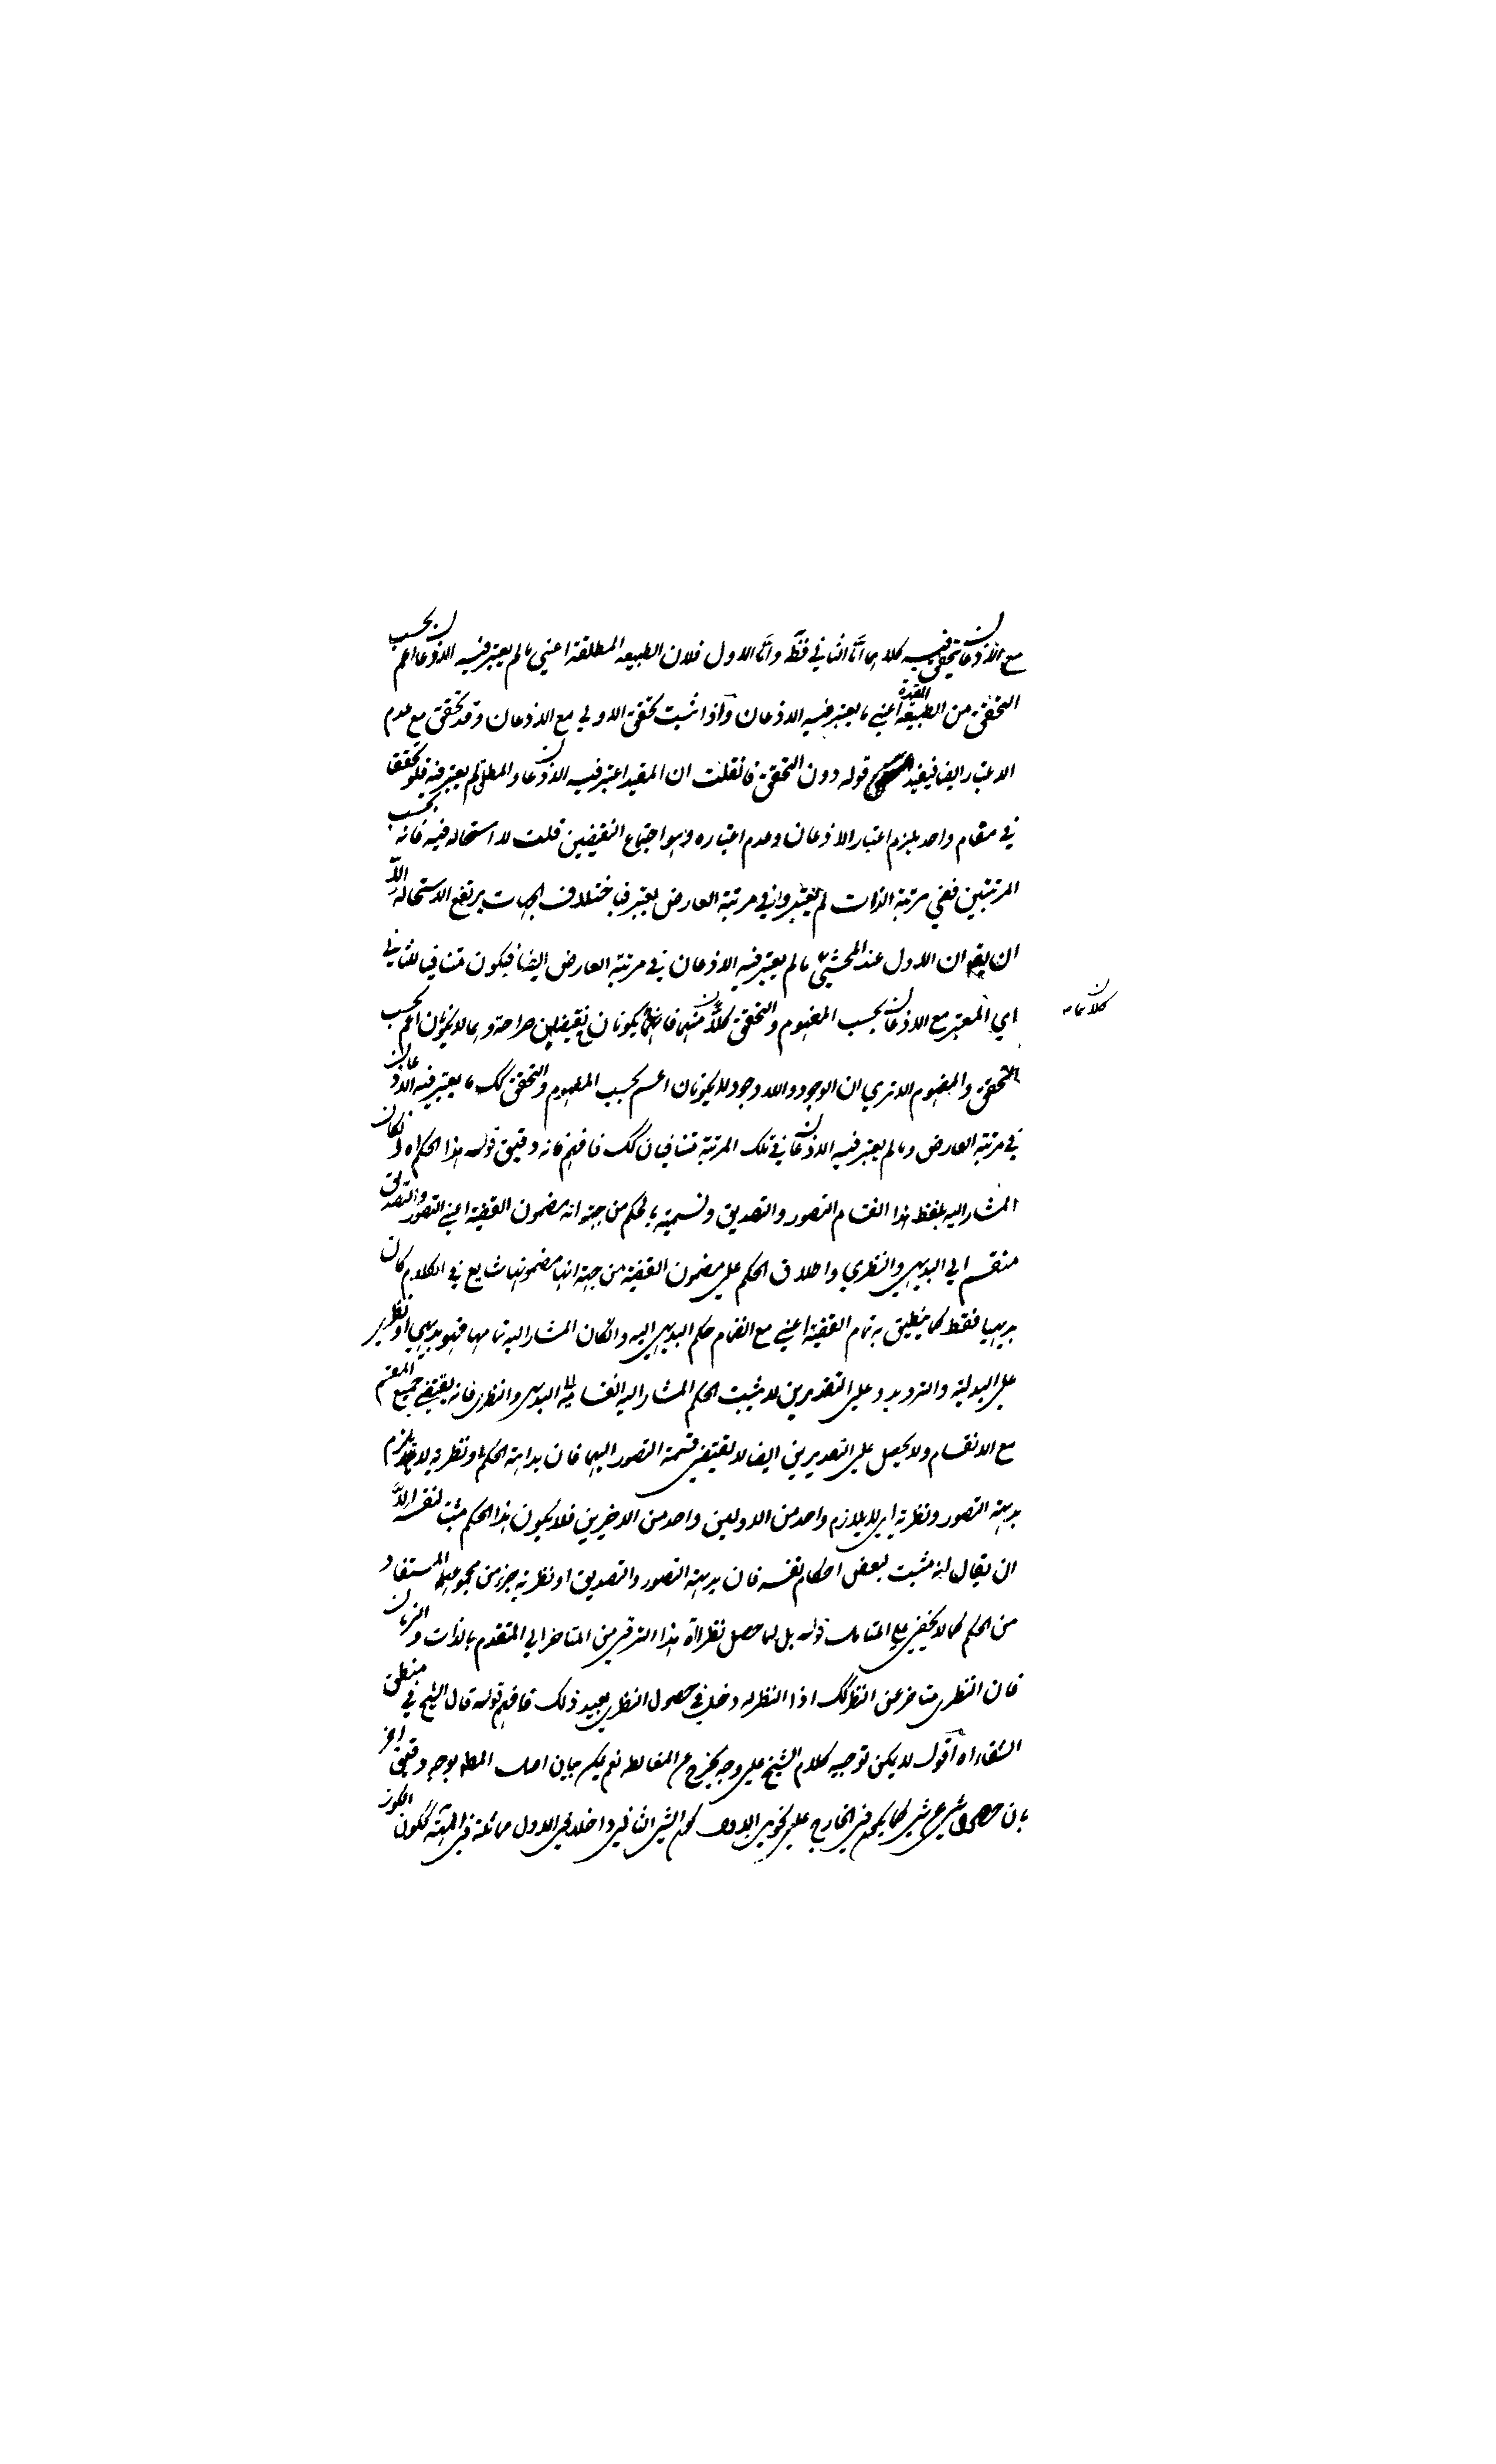 مع الاذعان يتحقق فيه كلاهما اما الثاني فقط واما الاول فلان الطبيعه المطلقة اعني ما لم يعتبر فيه الاذعان اعم بحسب
التحقق من الطبيعة المقيدة اعني ما يعتبر فيه الاذعان واذا ثبت تحقق الاولي مع الاذعان وقد تحقق مع عدم
الاعتبار ايضا فيفيد قوله دون التحقق فانقلت ان المقيد اعتبر فيه الاذعان والمطلق لم يعتبر فيه فلو تحققا
في مقام واحد يلزم اعتبار الاذعان وعدم اعتباره وهو اجتماع النقيضين قلت لا استحاله فيه فانه بحسب
المرتبتين ففي مرتبة الذات لم يعتبر وان في مرتبة العارض يعتبر فباختلاف الجهات يرتفع الاستحالة اللهم الا
ان يقو ان الاول عند المحشي ما لم يعتبر فيه الاذعان في مرتبة العارض ايضا فيكون متنافيا للثاني
اي المعتبر مع الاذعان بحسب المفهوم والتحقق كلاهما يكونان نقيضين صراحة وهما لا يكونان اعم بحسب
كلاهما ن
التحقق والمفهوم الا تري ان الوجود واللا وجود لا يكونان اعم بحسب المفهوم والتحقق كك ما يعتبر فيه الاذعان
في مرتبة العارض وما لم يعتبر فيه الاذعان في تلك المرتبة متنافيان كك فافهم فانه دقيق قوله هذا الحكم اه ان كان
المشار اليه بلفظ هذا انقسام التصور والتصديق وتسميته بالحكم من جهة انه مضمون القضية اعني التصور والتصديق
منقسم الي البديهي والنظري واطلاق الحكم علي مضمون القضية من جهة انها مضمونها شايع في الكلام كان
بديهيا فقط كما ينطبق به تمام القضية اعني مع انضمام حكم البديهي اليه وان كان المشار اليه تمامها فهو بديهي او نظري
علي البدلية والترديد وعلي التقديرين لا يثبت الحكم المشار اليه انقسامه الي البديهي والنظري فانه يقتضي جميع المقسم
مع الانقسام ولا يحصل علي التقديرين ايضا لا يقتضي قسمة التصور اليهما فان بداهة الحكم او نظريته لا يلزم
بديهة التصور ونظريته اي لا يلازم واحد من الاولين واحد من الاخيرين فلا يكون هذا الحكم مثبتا لنفسه اللهم الا
ان يقال انه مثبت لبعض احكام نفسه فان بديهة التصور والتصديق او نظريته جزء من مجموع المستفاد
من الحكم كما لا يخفي علي المتامل قوله بل لما حصل نظر اه هذا الترقي من المتاخر الي المتقدم بالذات والزمان
فان النظري متاخر عن النظر كك اذا النظر له دخل في حصول النظري بعيد ذلك فافهم قوله قال الشيخ في منطق
الشفاء اه اقول لا يمكن توجيه كلام الشيخ علي وجه يخرج عن المغالطه نعم يمكن بيان اصل المطلوب بوجه دقيق اخر
بان حصول شي عن شي كما يكون في الخارج علي نحوين الاول كون الشي الثاني داخلا في الاول مماثلة في الهيئة ككون الكون